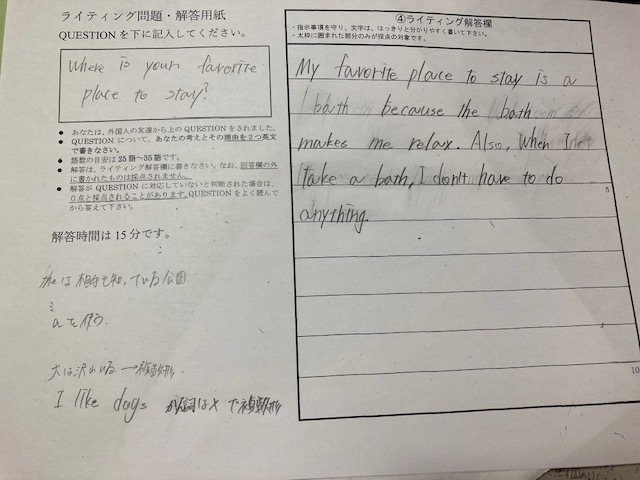 ライティング問題・解答用紙
QUESTIONを下に記入してください。
Where is your favorite
place to stay?
● あなたは、外国人の友達から上の QUESTION をされました。
● QUESTION について、あなたの考えとその理由を2つ英文
で書きなさい。
● 語数の目安は25語~35語です。
● 解答は、ライティング解答欄に書きなさい。なお、回答欄の外
に書かれたものは採点されません。
● 解答が QUESTION に対応していないと判断された場合は、
0点と採点されることがあります。QUESTION をよく読んで
から答えて下さい。
解答時間は15分です。
theは相手も知っている公園
aを使う
犬は沢山いる→複数形.
I like dogs
で複数形
④ライティング解答欄
・指示事項を守り、文字は、はっきりと分かりやすく書いて下さい。
・太枠に囲まれた部分のみが採点の対象です。
My favorite place to stay is a
bath because the bath
makes me relax. Also, when I
take a bath, I don't have to do
5
anything.
10